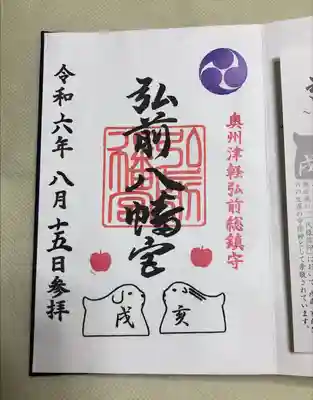 奥州津軽弘前総鎮守
弘前八幡宮
令和六年八月十五日参拝
戌
亥